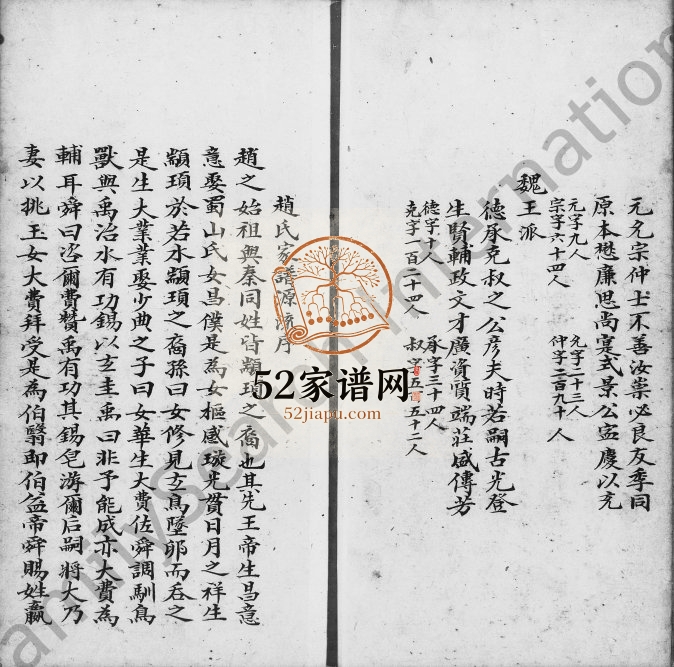 元允宗仲士不善汝崇必良友季同
原本懋廉思尚寔式景公宓慶以克
元字九人
宗字六十四人
允字二十三人
仲字二百九十人
魏王派
德承克叔之公彦夫時若嗣古光登
生賢輔政文才廣資質端莊盛傳芳
德字十人
克字一百二十四人
承字三十四人
叔字五百五十二人
趙氏家譜源流序
趙之始祖與秦同姓皆顓頊之裔也其先王帝生昌意
意娶蜀山氏女昌僕是為女樞感璇光貫日月之祥生
顓頊於若水顓頊之裔孫曰女修見玄鳥墜卵而吞之
是生大業業娶少典之子曰女華生大費佐舜調馴鳥
獸與禹治水有功錫以玄圭禹曰非予能成亦大費為
輔耳舜曰咨爾費贊禹有功其錫皂游爾后嗣將大乃
妻以姚王女大費拜受是為伯翳即伯益帝舜賜姓嬴
52家谱网
52jiapu.com
FamilySearch International